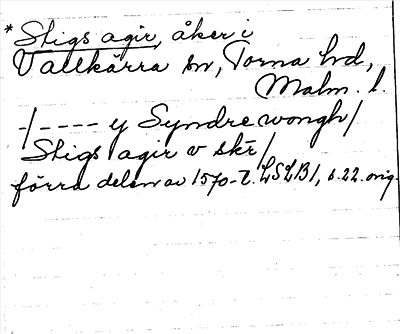 * Stigs agir, åker i
Vallkärra sn, Torna hd,
Malm. l.
-/---- y Syndre wongh/
Stigs agir v skr/
förra delen av 1570-t. LSLB1, s.22. orig.